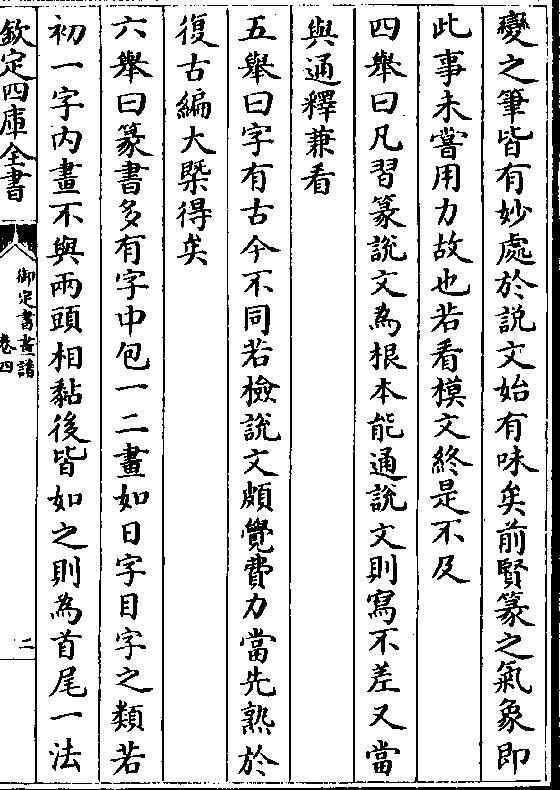 變之筆皆有妙處於説文始有味矣前賢篆之氣象即
此事未嘗用力故也若看模文終是不及
四舉曰凡習篆説文為根本能通説文則寫不差又當
與通釋兼看
五舉曰字有古今不同若檢説文頗覺費力當先熟於
復古編大槩得矣
六舉曰篆書多有字中包一二畫如日字目字之類若
初一字内畫不與兩頭相黏後皆如之則為首尾一法
欽定四庫全書
御定書畫譜
卷四
二